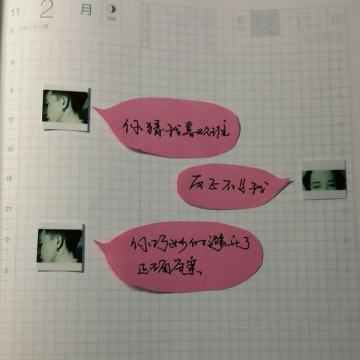 11
2
月
你猜我喜欢谁
反正不是我
你巧妙的避开了
正确答案